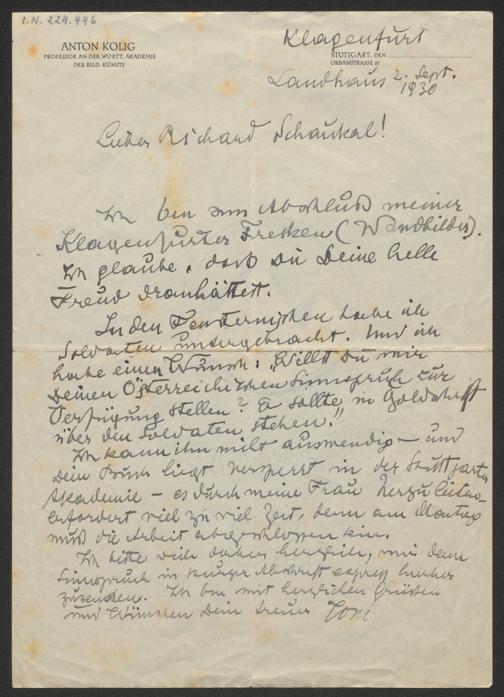 I.N. 224.446
ANTON KOLIG
PROFESSOR AN DER WÜRTT. AKADEMIE
DER BILD. KÜNSTE
Klagenfurt
STUTTGART, DEN
URBANSTRASSE 37
Landhaus 2. Sept.
1930
Lieber Richard Schaukal!
Ich bin am Abschluß meiner
Klagenfurter Fresken (Wandbilder).
Ich glaube, daß Du Deine helle
Freud dran hättest.
In den Fensternischen habe ich
Soldaten untergebracht. Und ich
habe einen Wunsch: "Willst Du mir
Deinen Österreichischen Sinnspruch zur
Verfügung stellen? Er sollte in Goldschrift
über den Soldaten stehen."
Ich kann ihn nicht auswendig – und
Dein Buch liegt versperrt in der Stuttgarter
Akademie – es durch meine Frau herzuleiten
erfordert viel zu viel Zeit, denn am Montag
muß die Arbeit abgeschlossen sein.
Ich bitte Dich daher herzlich, mir den
Sinnspruch in kurzer Abschrift express hierher
zusenden. Ich bin mit herzlichen Grüßen
und Wünschen Dein treuer Toni